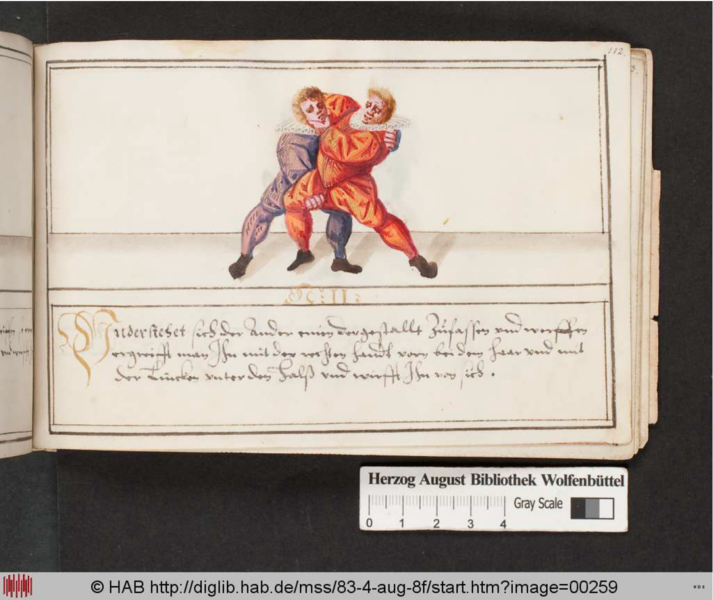 112.
Understehet sich der Ander einen dergestallt Zufassen und werffen
ergreifft man Ihn mit der rechten handt vorn bei dem haar und mit
der Lincken unter den halß und wirfft Ihn von sich.
Herzog August Bibliothek Wolfenbüttel
Gray Scale
0 1 2 3 4
© HAB http://diglib.hab.de/mss/83-4-aug-8f/start.htm?image=00259